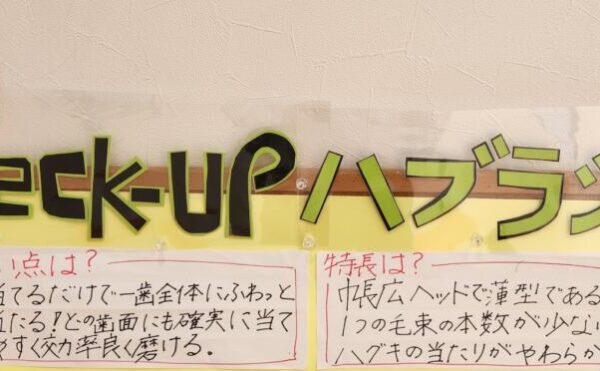 eck-up ハブラシ
い点は?
当てるだけで一歯全体にふわっと
当たる!との歯面にも確実に当て
やすく効率良く磨ける.
特長は?
帳広ヘッドで薄型である
1つの毛束の本数が少ない
ハグキの当たりがやわらか